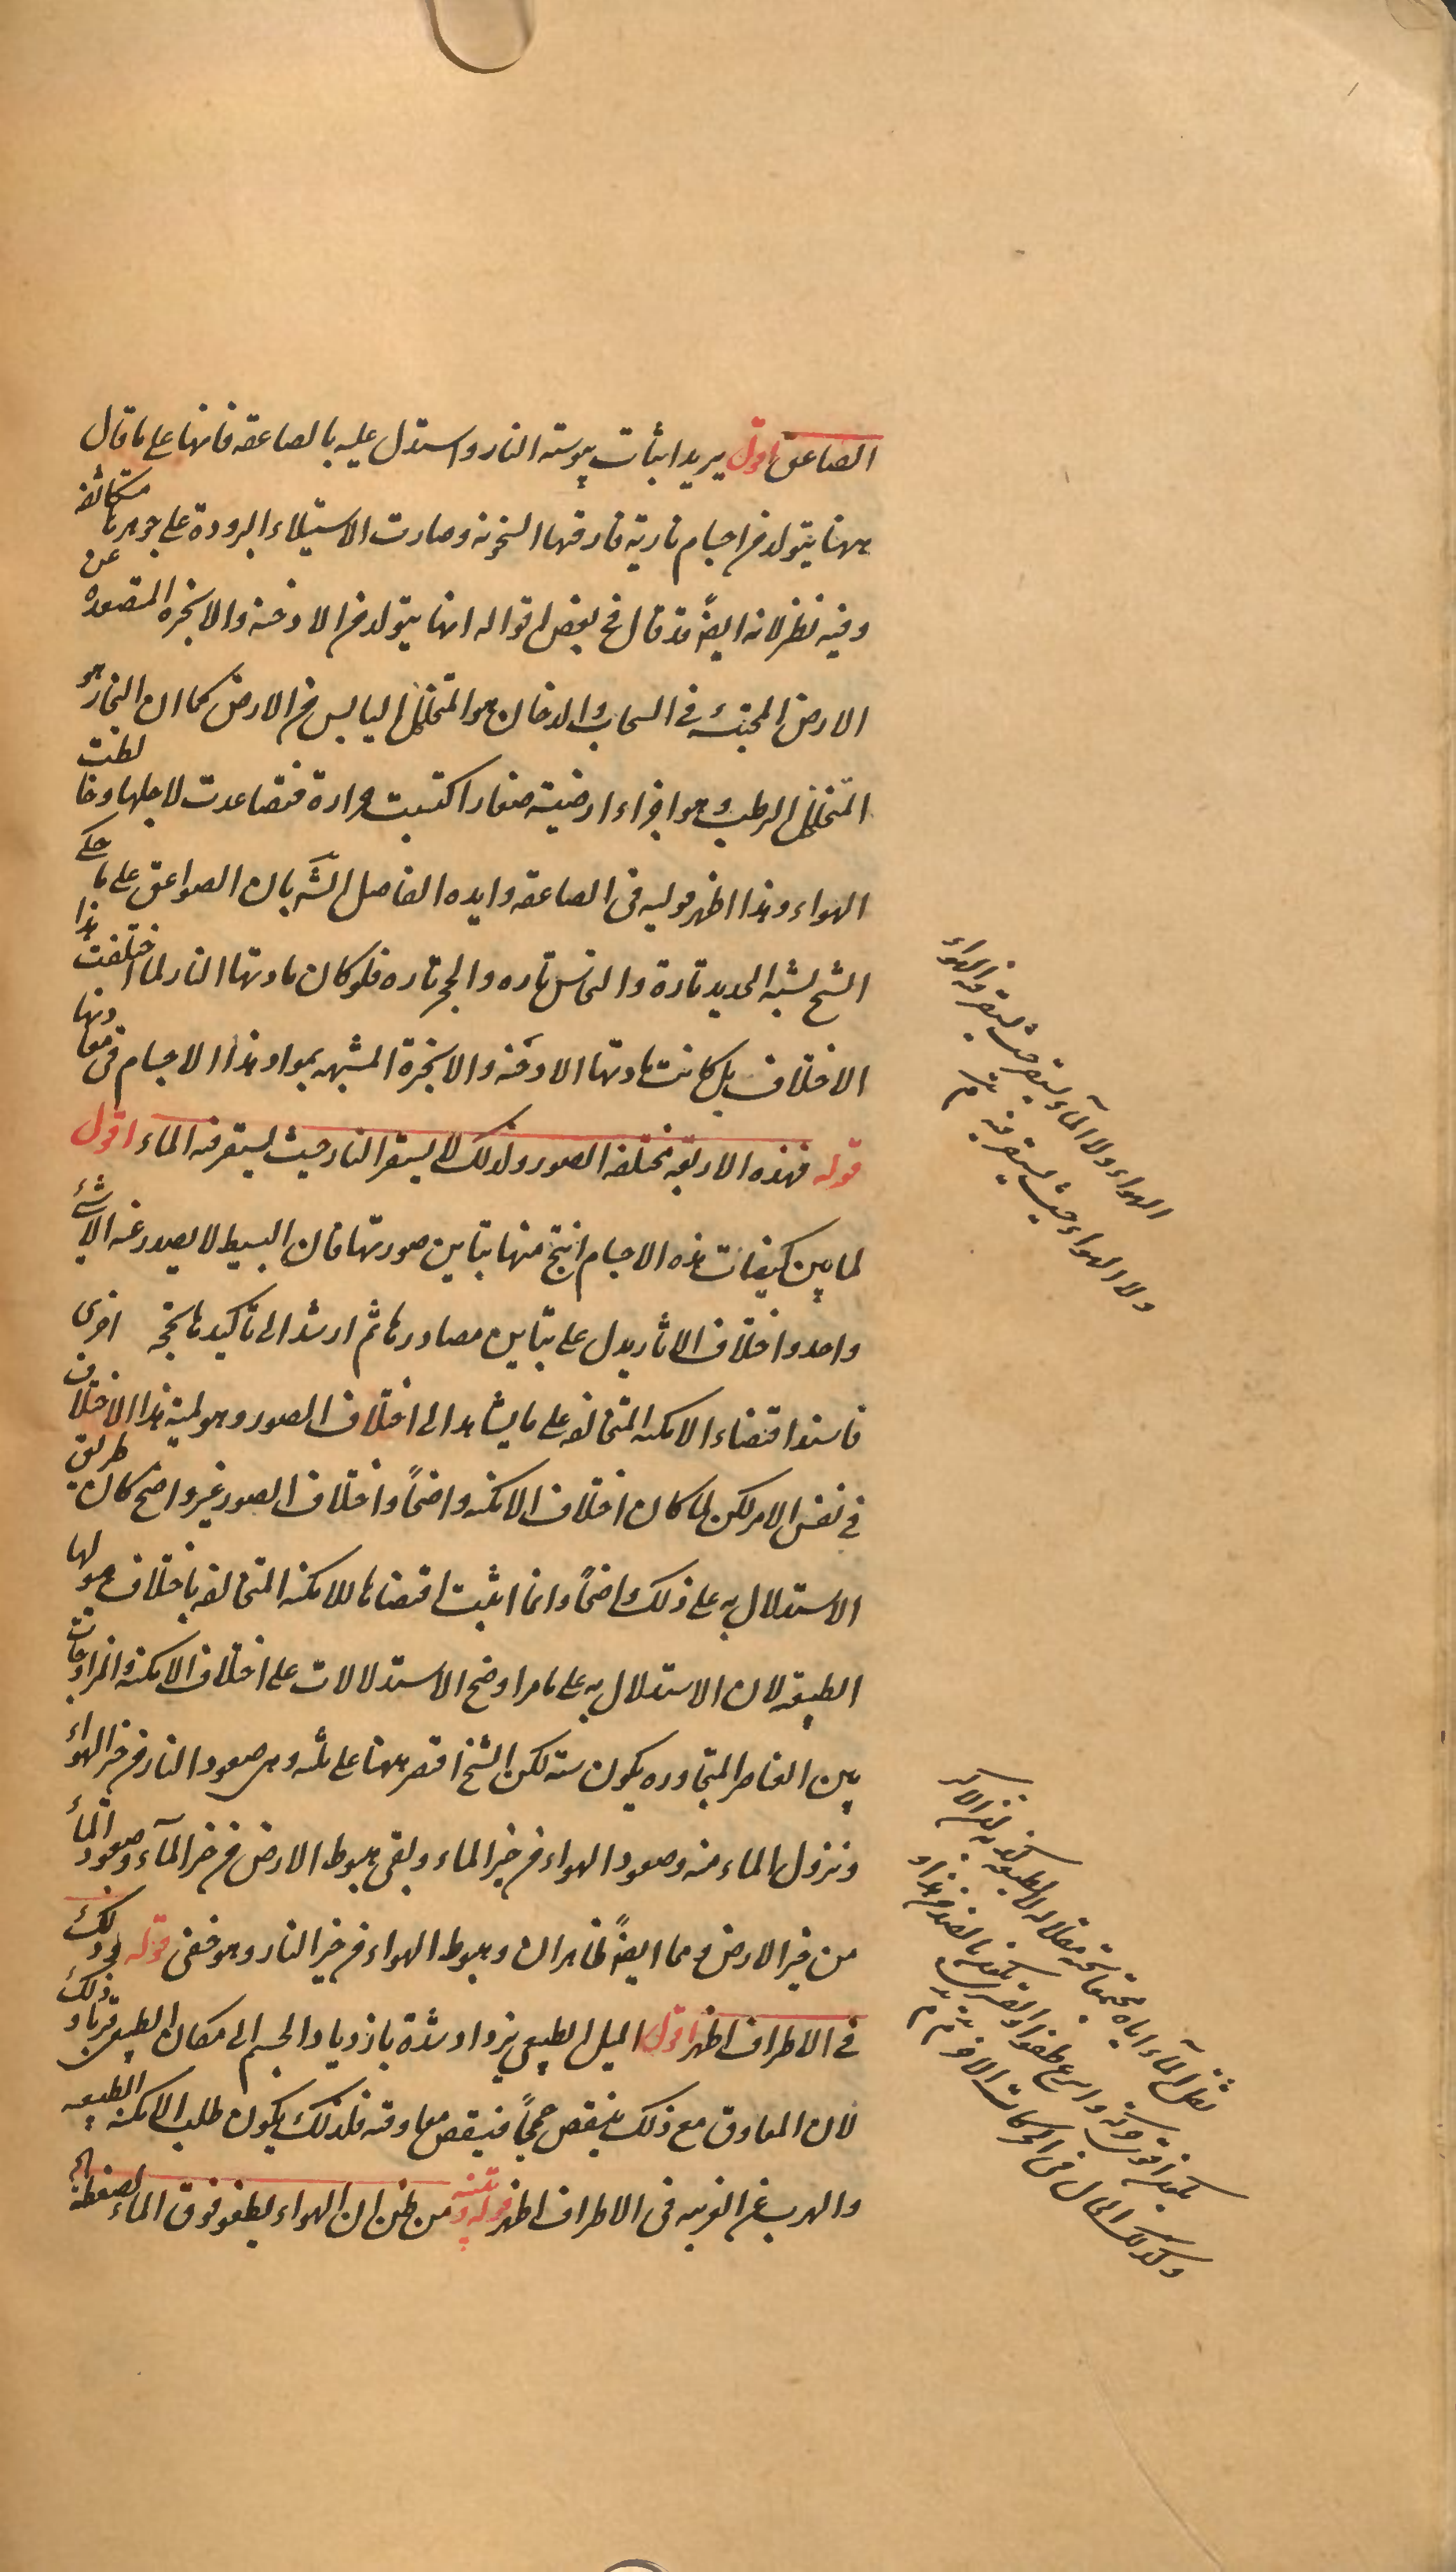 الصاعق اقول يريد اثبات يبوسته النار واستدل عليه بالصاعقه فانها على ما قال
ههنا يتولد من اجسام نارية فارقتها السخونه وصارت الاستيلاء البرودة على جوهرها متكاثفه
وفيه نظر لانه ايضً قد قال في بعض اقواله انها يتولد من الادخنة والابخره المتصعده عن
الارض المحتبسه في السحاب والدخان هو المتخلل اليابس من الارض كما ان البخار هو
المتخلل الرطب وهو اجزاء ارضية صغار اكتسبت حرارة فتصاعدت لاجلها وخالطت
الهواء وهذا اظهر قوليه فى الصاعقه وايده الفاضل الشه بان الصواعق على ما حكى
الشيخ لشبه الحديد تارة والنحاس تاره والحجر تاره فلو كان مادتها النار لما اختلفت هذا
الاختلاف بل كانت مادتها الادخنه والابخرة المشبهه بمواد هذا الاجسام فى معادنها
قوله فهذه الاربعه مختلفه الصور ولذلك لا يستقر النار حيث يستقر فيه الماء اقول
لما بين كيفيات هذه الاجسام انتج منها تباين صورتها فان البسيط لا يصدر عنه الا شئ
واحد واختلاف الاثار يدل على تباين مصادرها ثم ارشد الى تاكيدها بحجه اخرى
فاسند اقتضاء الامكنه المتخالفه على ما يشاهد الى اختلاف الصور وهو لمية هذا الاختلاف
في نفس الامر لكن لما كان اختلاف الامكنه واضحاً واختلاف الصور غير واضح كان طريق
الاستدلال به على ذلك واضحاً وانما اثبت اقتضاها للامكنه المتخالفه باختلاف ميولها
الطبيعه لان الاستدلال به على ما مر اوضح الاستدلالات على اختلاف الامكنه والمزاوجات
بين العناصر المتجاوره يكون سته لكن الشيخ اقتصر ههنا على ثلثه وهى صعود النار من حيز الهواء
ونزول الماء منه وصعود الهواء من حيز الماء وبقى هبوط الارض من حيز المآء وصعود المآء
من حيز الارض وهما ايضً ظاهران وهبوط الهواء من حيز النار وهو خفى قوله وذلك
في الاطراف اظهر اقول الميل الطبيعى يزداد شدة بازدياد الجسم الى مكان الطبيعى قربا وذلك
لان المعاوق مع ذلك ينقص حجماً فينقص معاوقته فلذلك يكون طلب الامكنه الطبيعيه
والهرب عن الغريبه فى الاطراف اظهر قوله تنبيه ومن ظن ان الهواء يطفو فوق الماء لضغطه
الهواء ولا المآء يستقر حيث يستقر فيه الهواء
ولا الهواء حيث يستقر فيه
ثقل المآء اياه مجتمعا تحته مقلا له لا بطبيعه كذبه ان الاكبر
يكون اقوى حركة واسرع طفوا والقسرى يكون بالضد من هذا
وكذلك الحال فى الحركات الاخر